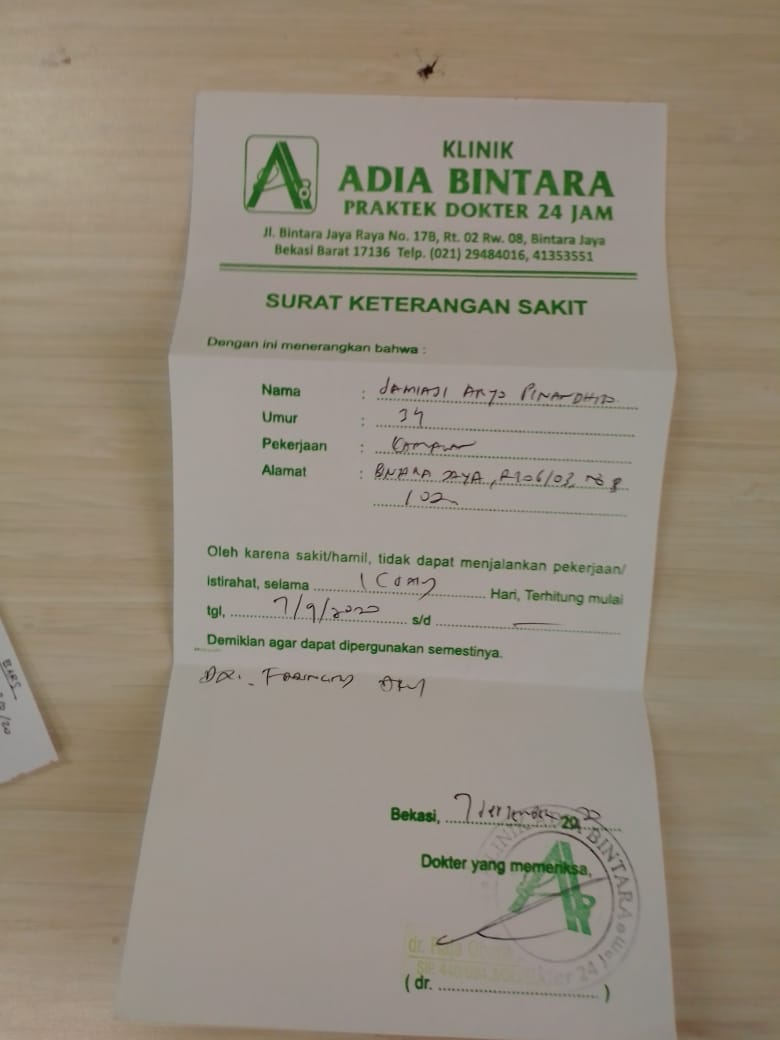 KLINIK
ADIA BINTARA
PRAKTEK DOKTER 24 JAM
Jl. Bintara Jaya Raya No. 17B, Rt. 02 Rw. 08, Bintara Jaya
Bekasi Barat 17136 Telp. (021) 29484016, 41353551
SURAT KETERANGAN SAKIT
Dengan ini menerangkan bahwa :
Nama : JAMIAJI ARYO PINANDHITO
Umur : 34
Pekerjaan :
Alamat : JAYA, RT06/03, No 8
102
Oleh karena sakit/hamil, tidak dapat menjalankan pekerjaan/
istirahat, selama 1 Hari, Terhitung mulai
tgl, 7/9/2020 s/d
Demikian agar dapat dipergunakan semestinya.
Bekasi, 7 September 2020
Dokter yang memeriksa,
KLINIK BINTARA
24 Jam
(dr. )